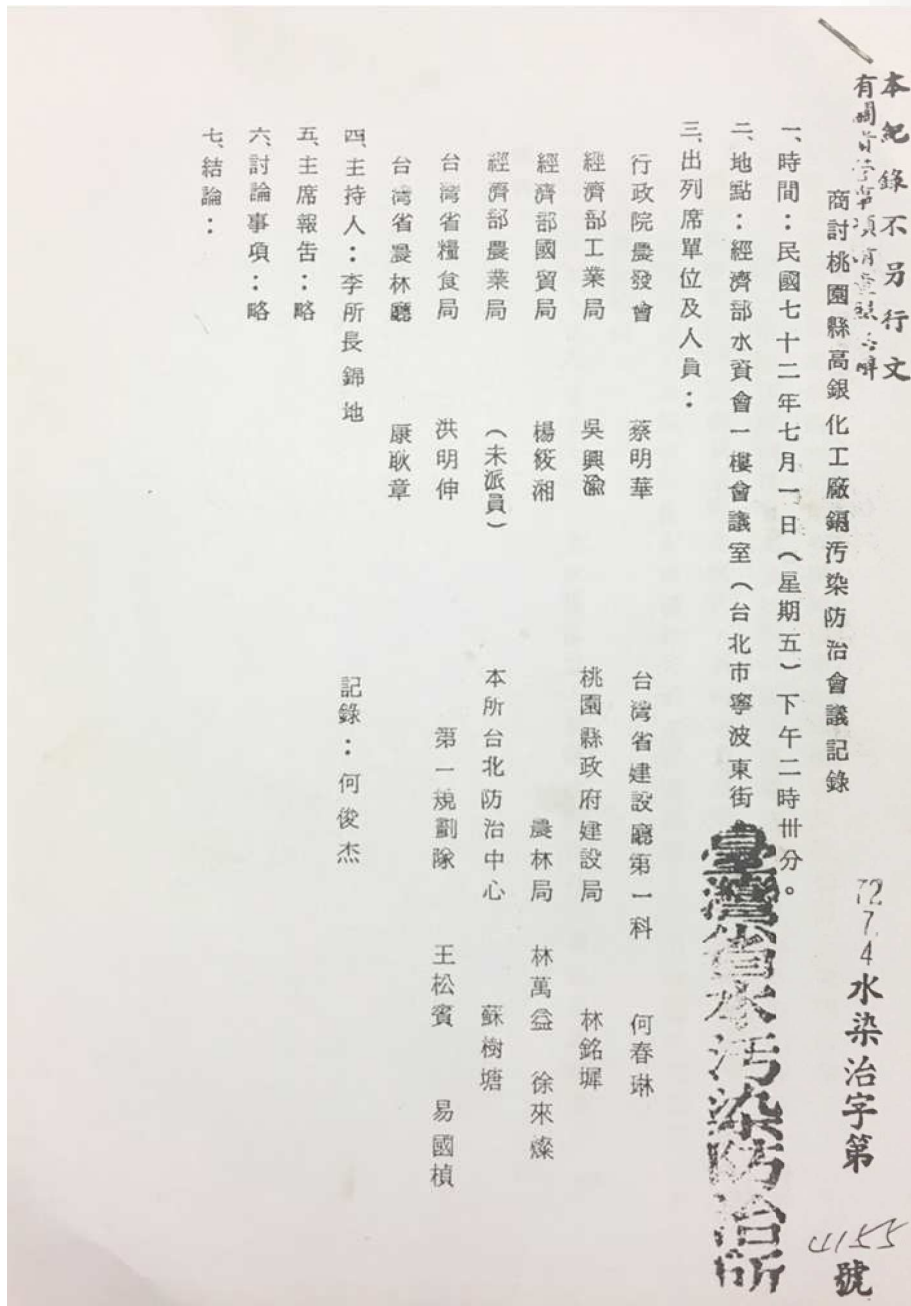 本紀錄不另行文
有關
72 7. 4 水染治字第 4155 號
商討桃園縣高銀化工廠鎘污染防治會議記錄
一、時間：民國七十二年七月一日（星期五）下午二時卅分。
二、地點：經濟部水資會一樓會議室（台北市寧波東街
臺灣省水污染防治所
三、出列席單位及人員：
行政院農發會 蔡明華 台灣省建設廳第一科 何春琳
經濟部工業局 吳興渝 桃園縣政府建設局 林銘墀
經濟部國貿局 楊筱湘 農林局 林萬益 徐來燦
經濟部農業局 （未派員） 本所台北防治中心 蘇樹塘
台灣省糧食局 洪明伸 第一規劃隊 王松賓 易國楨
台灣省農林廳 康耿章
四、主持人：李所長錦地 記錄：何俊杰
五、主席報告：略
六、討論事項：略
七、結論：